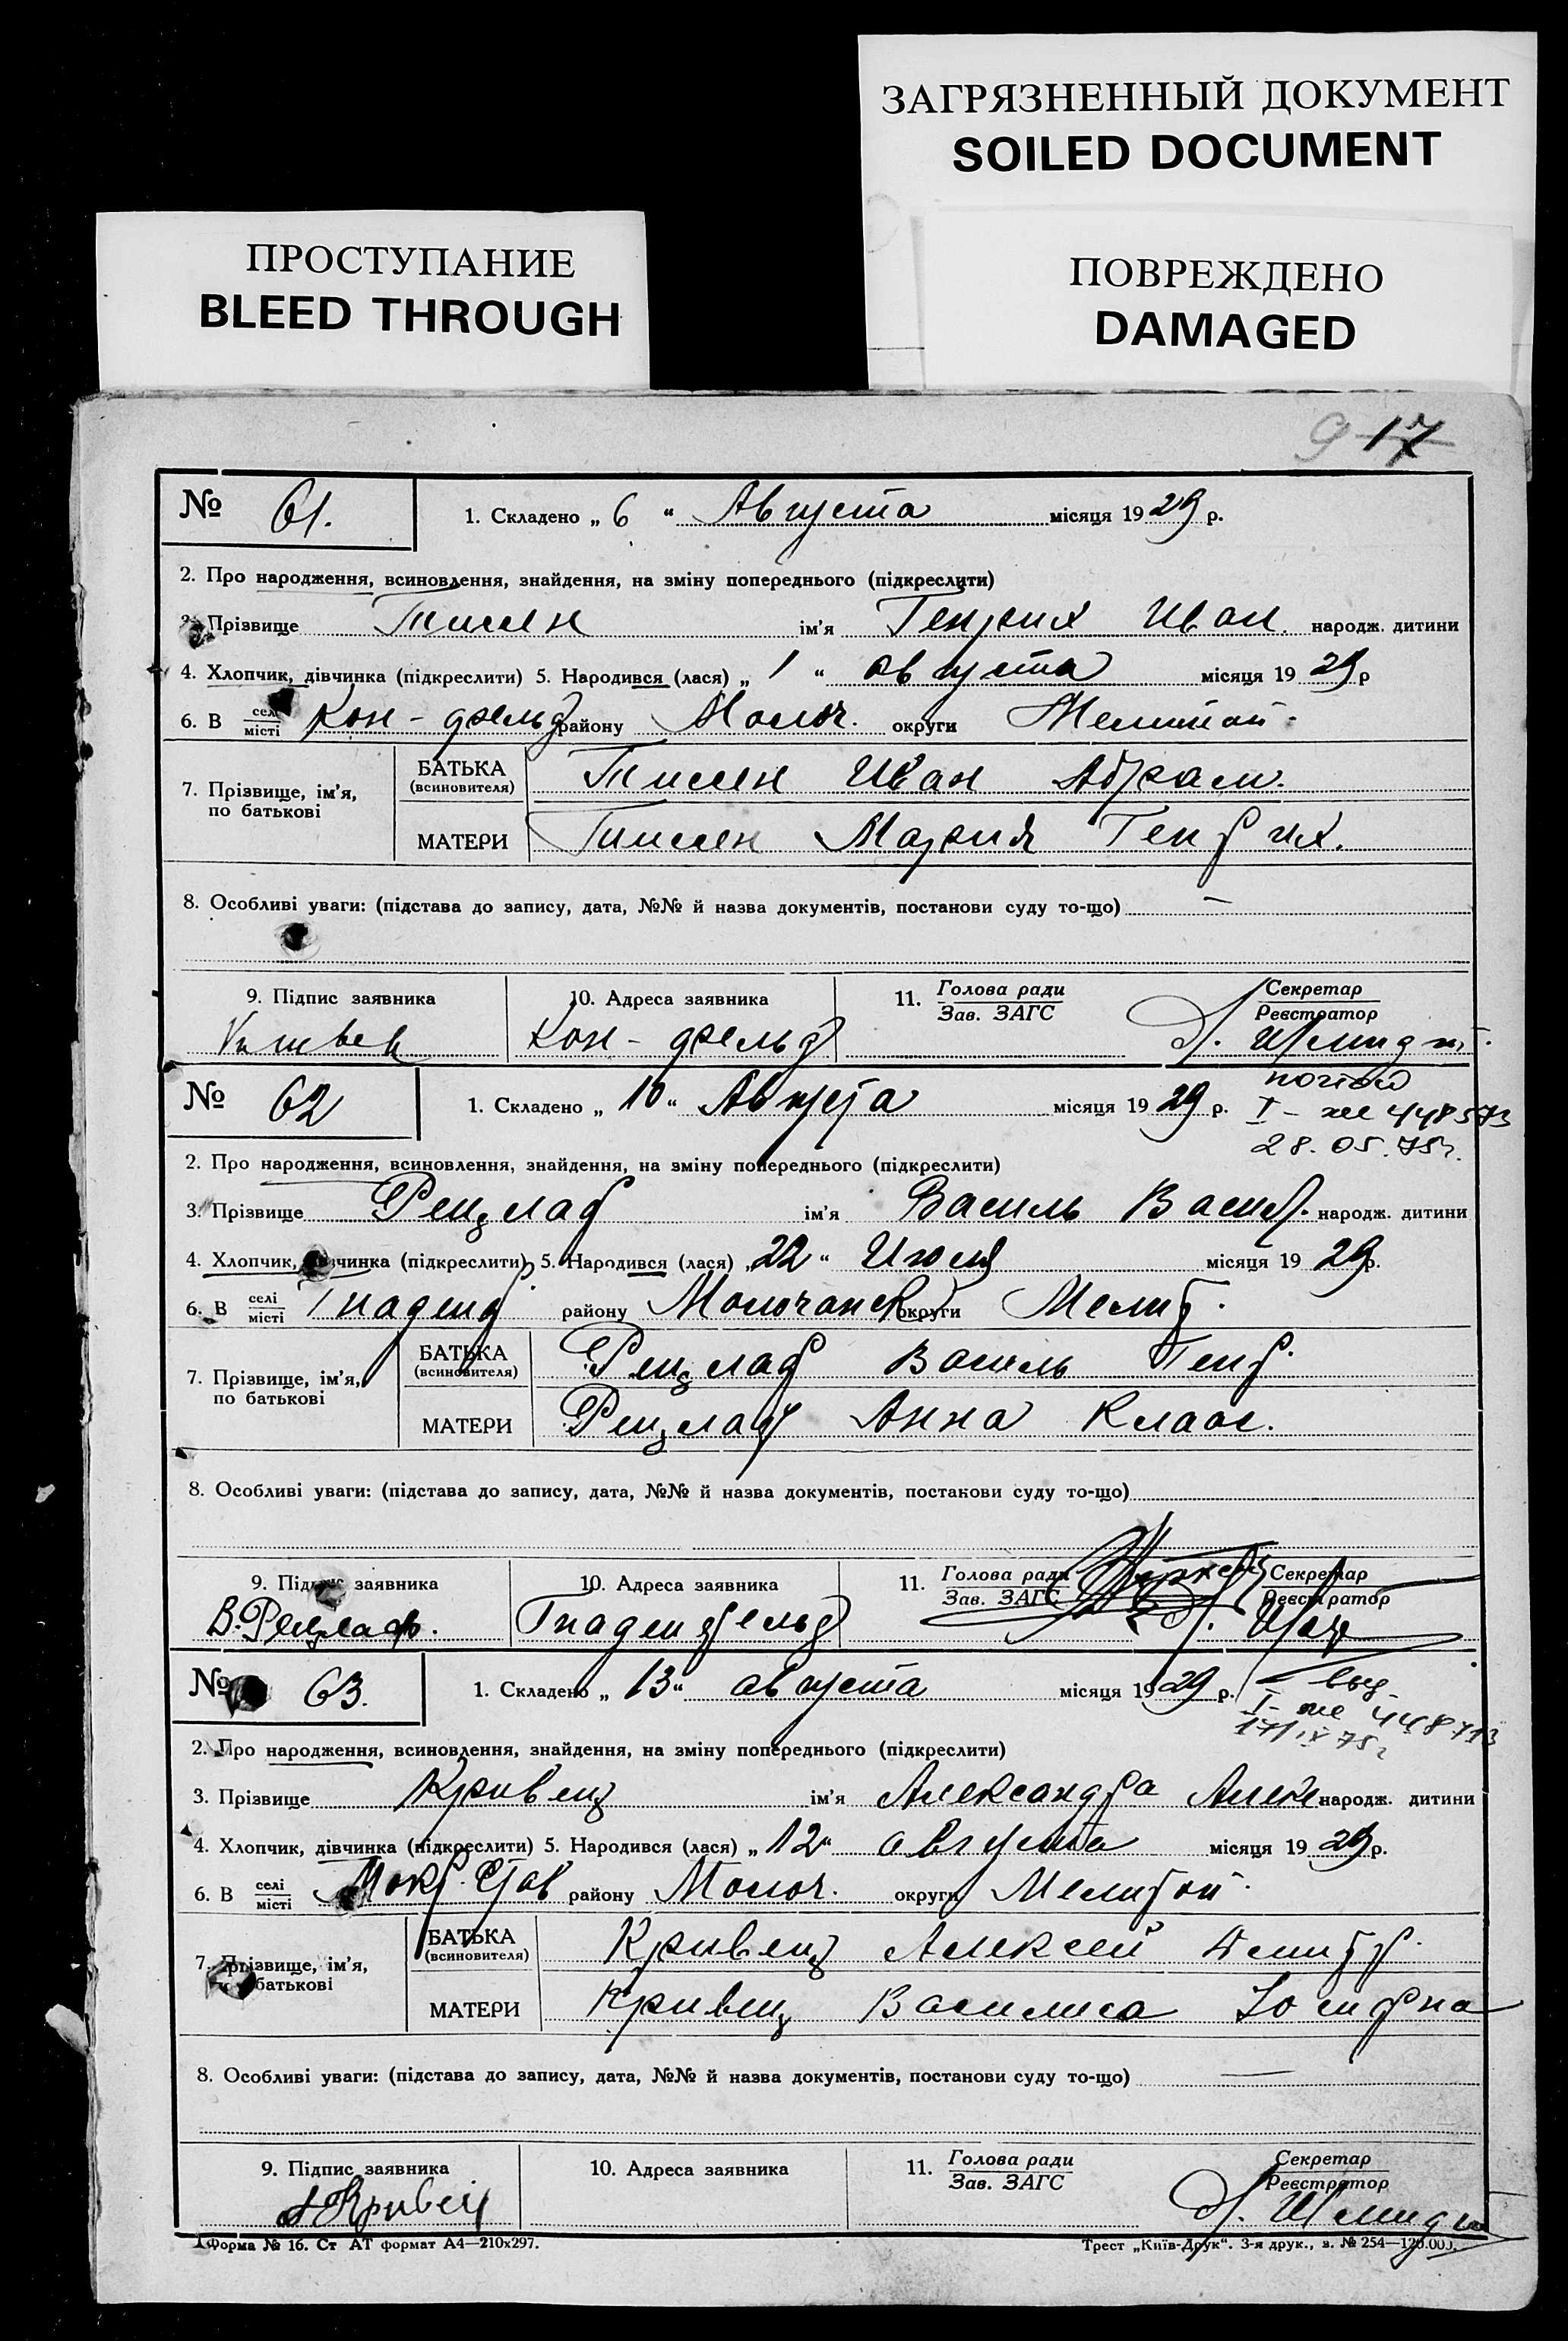 ЗАГРЯЗНЕННЫЙ ДОКУМЕНТ
SOILED DOCUMENT
ПРОСТУПАНИЕ
BLEED THROUGH
ПОВРЕЖДЕНО
DAMAGED
9 17
№ 61. 1. Складено „ 6 “ Августа місяця 1929 р.
2. Про народження, всиновлення, знайдення, на зміну попереднього (підкреслити)
3. Прізвище Тиссен ім'я Генрих Иван. народж. дитини
4. Хлопчик, дівчинка (підкреслити) 5. Народився (лася) „ 1 “ августа місяця 1929 р
6. В селі/місті Кон-фельд району Молоч. округи Мелитоп.
7. Прізвище, ім'я, по батькові БАТЬКА (всиновителя) Тиссен Иван Абрам.
МАТЕРИ Тиссен Мария Генрих.
8. Особливі уваги: (підстава до запису, дата, №№ й назва документів, постанови суду то-що) —
9. Підпис заявника 10. Адреса заявника 11. Голова ради/Зав. ЗАГС Секретар/Реєстратор
Кон-фельд Д. Шмидт.
№ 62 1. Складено „ 10 “ Августа місяця 1929 р.
I - же 448573
28.05.75г.
2. Про народження, всиновлення, знайдення, на зміну попереднього (підкреслити)
3. Прізвище Рецлаф ім'я Василь Васил. народж. дитини
4. Хлопчик, дівчинка (підкреслити) 5. Народився (лася) „ 22 “ Июля місяця 1929 р.
6. В селі/місті Гнаденф району Молочанск округи Мелит.
7. Прізвище, ім'я, по батькові БАТЬКА (всиновителя) Рецлаф Василь Генр.
МАТЕРИ Рецлаф Анна Клаас.
8. Особливі уваги: (підстава до запису, дата, №№ й назва документів, постанови суду то-що)
9. Підпис заявника 10. Адреса заявника 11. Голова ради/Зав. ЗАГС Секретар/Реєстратор
В. Рецлаф. Гнаденфельд
№ 63. 1. Складено „ 13 “ августа місяця 1929 р.
выд.
I - же 448713
17/IX 75г
2. Про народження, всиновлення, знайдення, на зміну попереднього (підкреслити)
3. Прізвище Кривец ім'я Александра Алекс народж. дитини
4. Хлопчик, дівчинка (підкреслити) 5. Народився (лася) „ 12 “ августа місяця 1929 р.
6. В селі/місті Мокр. Став району Молоч. округи Мелитоп.
7. Прізвище, ім'я, по батькові БАТЬКА (всиновителя) Кривец Алексей Дмитр.
МАТЕРИ Кривец Василиса Иосифна
8. Особливі уваги: (підстава до запису, дата, №№ й назва документів, постанови суду то-що) —
9. Підпис заявника 10. Адреса заявника 11. Голова ради/Зав. ЗАГС Секретар/Реєстратор
А Кривец Д. Шмидт
Форма № 16. Ст АТ формат А4—210х297. Трест „Київ-Друк“. 3-я друк., з. № 254—120.000.